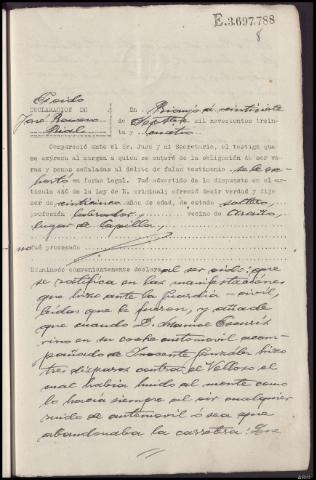 E.3.697.788
8
Oido
DECLARACION DE
José Romero
Rial
En Rianjo a veintisiete
de Sepbre. mil novecientos trein-
ta y cuatro
Compareció ante el Sr. Juez y mi Secretario, el testigo que
se expresa al margen a quien se enteró de la obligación de ser ve-
raz y penas señaladas al delito de falso testimonio
en forma legal. Fué advertido de lo dispuesto en el ar-
tículo 446 de la Ley de E. criminal; ofreció decir verdad y dijo
ser de veinticinco años de edad, de estado soltero,
profesión labrador, vecino de Araño,
lugar de Capilla,
no fué procesado
Examinado convenientemente declara al ser oido: que
se ratifica en las manifestaciones
que hizo ante la guardia civil,
leidas que le fueron, y añade
que cuando D. Manuel
vino en su coche automovil acom-
pañado de Inocente González hizo
tres disparos contra el Velloso el
cual había huido al monte como
lo hacía siempre al oir cualquier
ruido de automovil ó sea que
abandonaba la carretera: